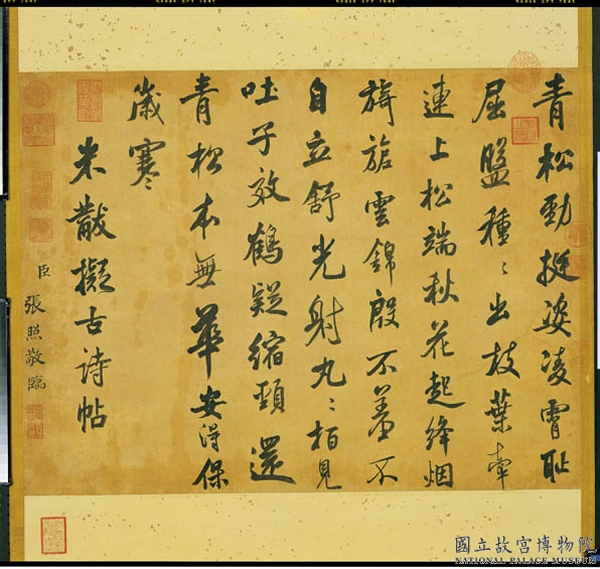 青松勁挺姿凌霄恥
屈盤種〻出枝葉牽
連上松端秋花起絳烟
旖旎雲錦殷不羞不
自立舒光射丸〻栢見
吐子效鶴疑縮頸還
青松本無華安得保
歲寒
米黻擬古詩帖
臣張照敬臨
國立故宮博物院
NATIONAL PALACE MUSEUM